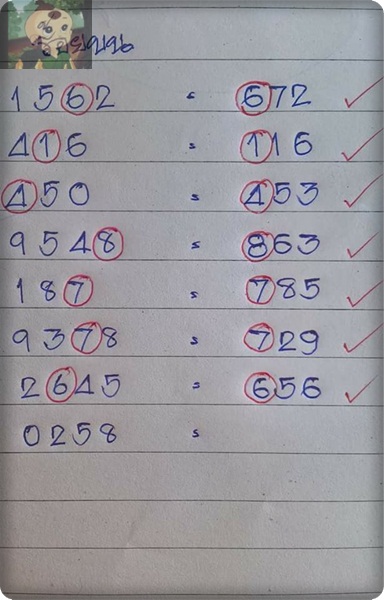 1562 = 672
416 = 116
450 = 453
9548 = 863
187 = 785
9378 = 729
2645 = 656
0258 =